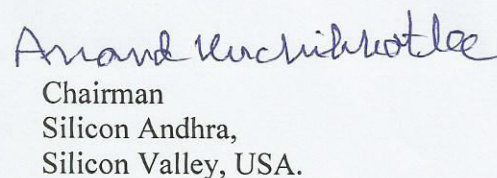 Anand Kuchibhotlaa
Chairman
Silicon Andhra,
Silicon Valley, USA.